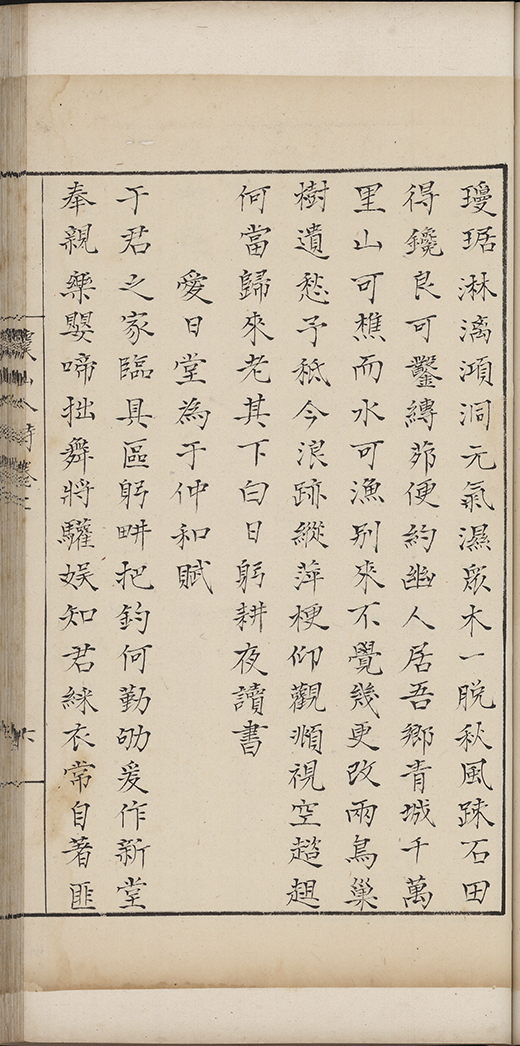 瓊琚淋漓澒洞元氣濕眾木一脫秋風踈石田
得鑱良可鑿縳茆便約幽人居吾鄉青城千萬
里山可樵而水可漁別來不覺幾更改兩鳥巢
樹遺愁予秖今浪跡縱萍梗仰觀頫視空趦趄
何當歸來老其下白日躬耕夜讀書
愛日堂為于仲和賦
于君之家臨具區躬畊把釣何勤劬爰作新堂
奉親樂嬰啼拙舞將驩娛知君綵衣常自著匪